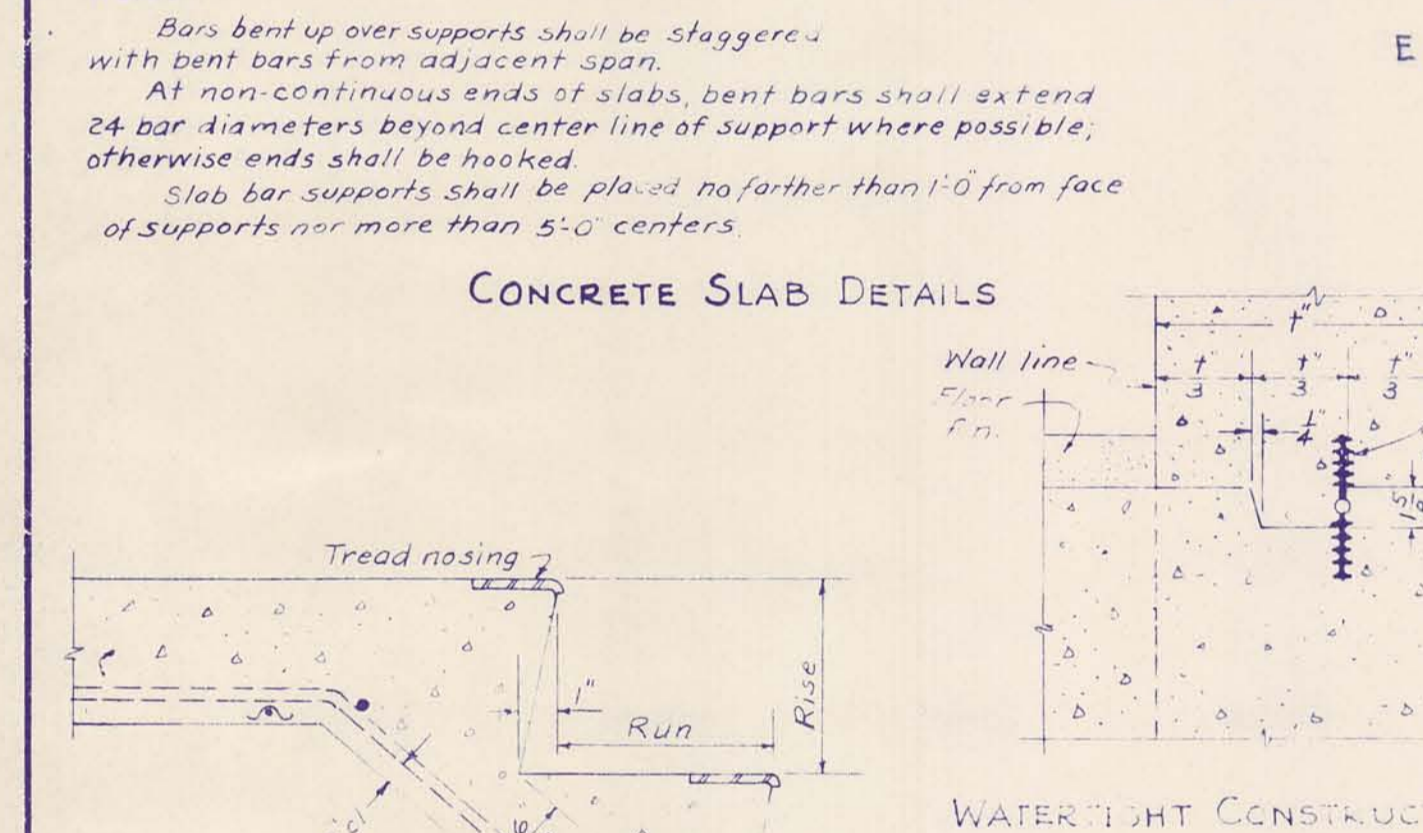 Bars bent up over supports shall be staggered
with bent bars from adjacent span.
At non-continuous ends of slabs, bent bars shall extend
24 bar diameters beyond center line of support where possible;
otherwise ends shall be hooked.
Slab bar supports shall be placed no farther than 1'-0" from face
of supports nor more than 5'-0" centers.
E
CONCRETE SLAB DETAILS
t"
Wall line
t"/3 t"/3 t"/3
Floor
fin.
1/4"
Tread nosing
1"
Run
Rise
WATERTIGHT CONSTRUC